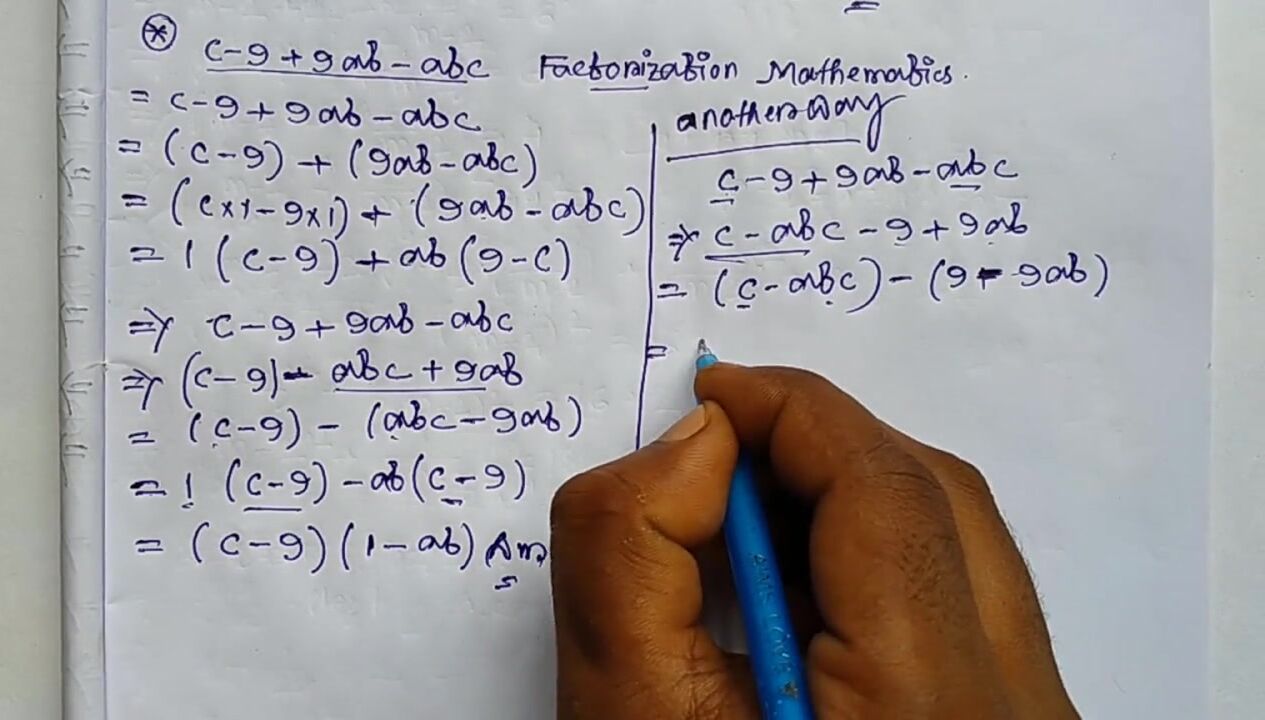 c-9+9ab-abc Factorization Mathematics.
= c-9+9ab-abc
= (c-9) + (9ab-abc)
= (c×1-9×1) + (9ab-abc)
= 1(c-9) + ab(9-c)
=> c-9+9ab-abc
=> (c-9) - abc+9ab
= (c-9) - (abc-9ab)
= 1(c-9) - ab(c-9)
= (c-9)(1-ab) Ans
another way
c-9+9ab-abc
=> c-abc-9+9ab
= (c-abc)-(9-9ab)
=